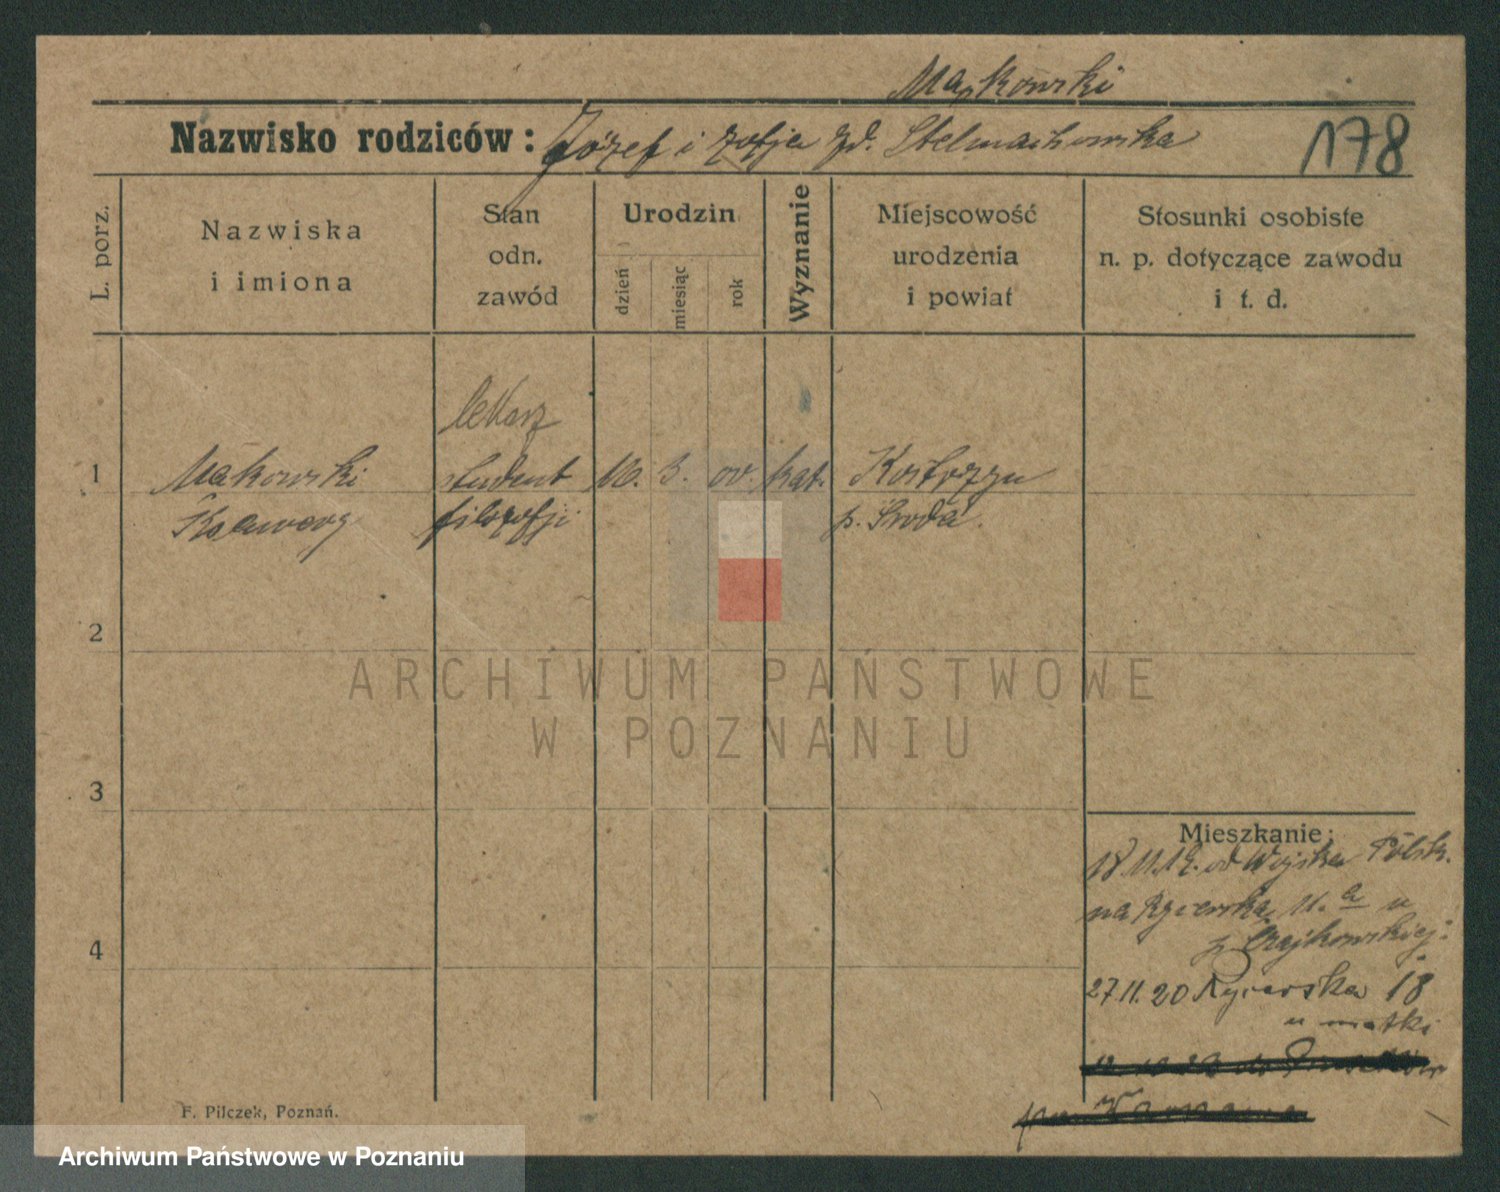 Makowski
Nazwisko rodziców: Józef i Zofja zd. Stelmachowska
178
L. porz.
Nazwiska
i imiona
Stan
odn.
zawód
Urodzin
dzień
miesiąc
rok
Wyznanie
Miejscowość
urodzenia
i powiat
Stosunki osobiste
n. p. dotyczące zawodu
i t. d.
lekarz
1
Makowski
student
3.
00.
kat.
Kostrzyn
Ksawery
filozofji
p. Środa
2
ARCHIWUM PAŃSTWOWE
W POZNANIU
3
Mieszkanie:
od Wojska Polsk.
na Rycerska 11. a u
p. Czajkowskiej.
4
27.11.20 Rycerska 18
u matki
F. Pilczek, Poznań.
Archiwum Państwowe w Poznaniu